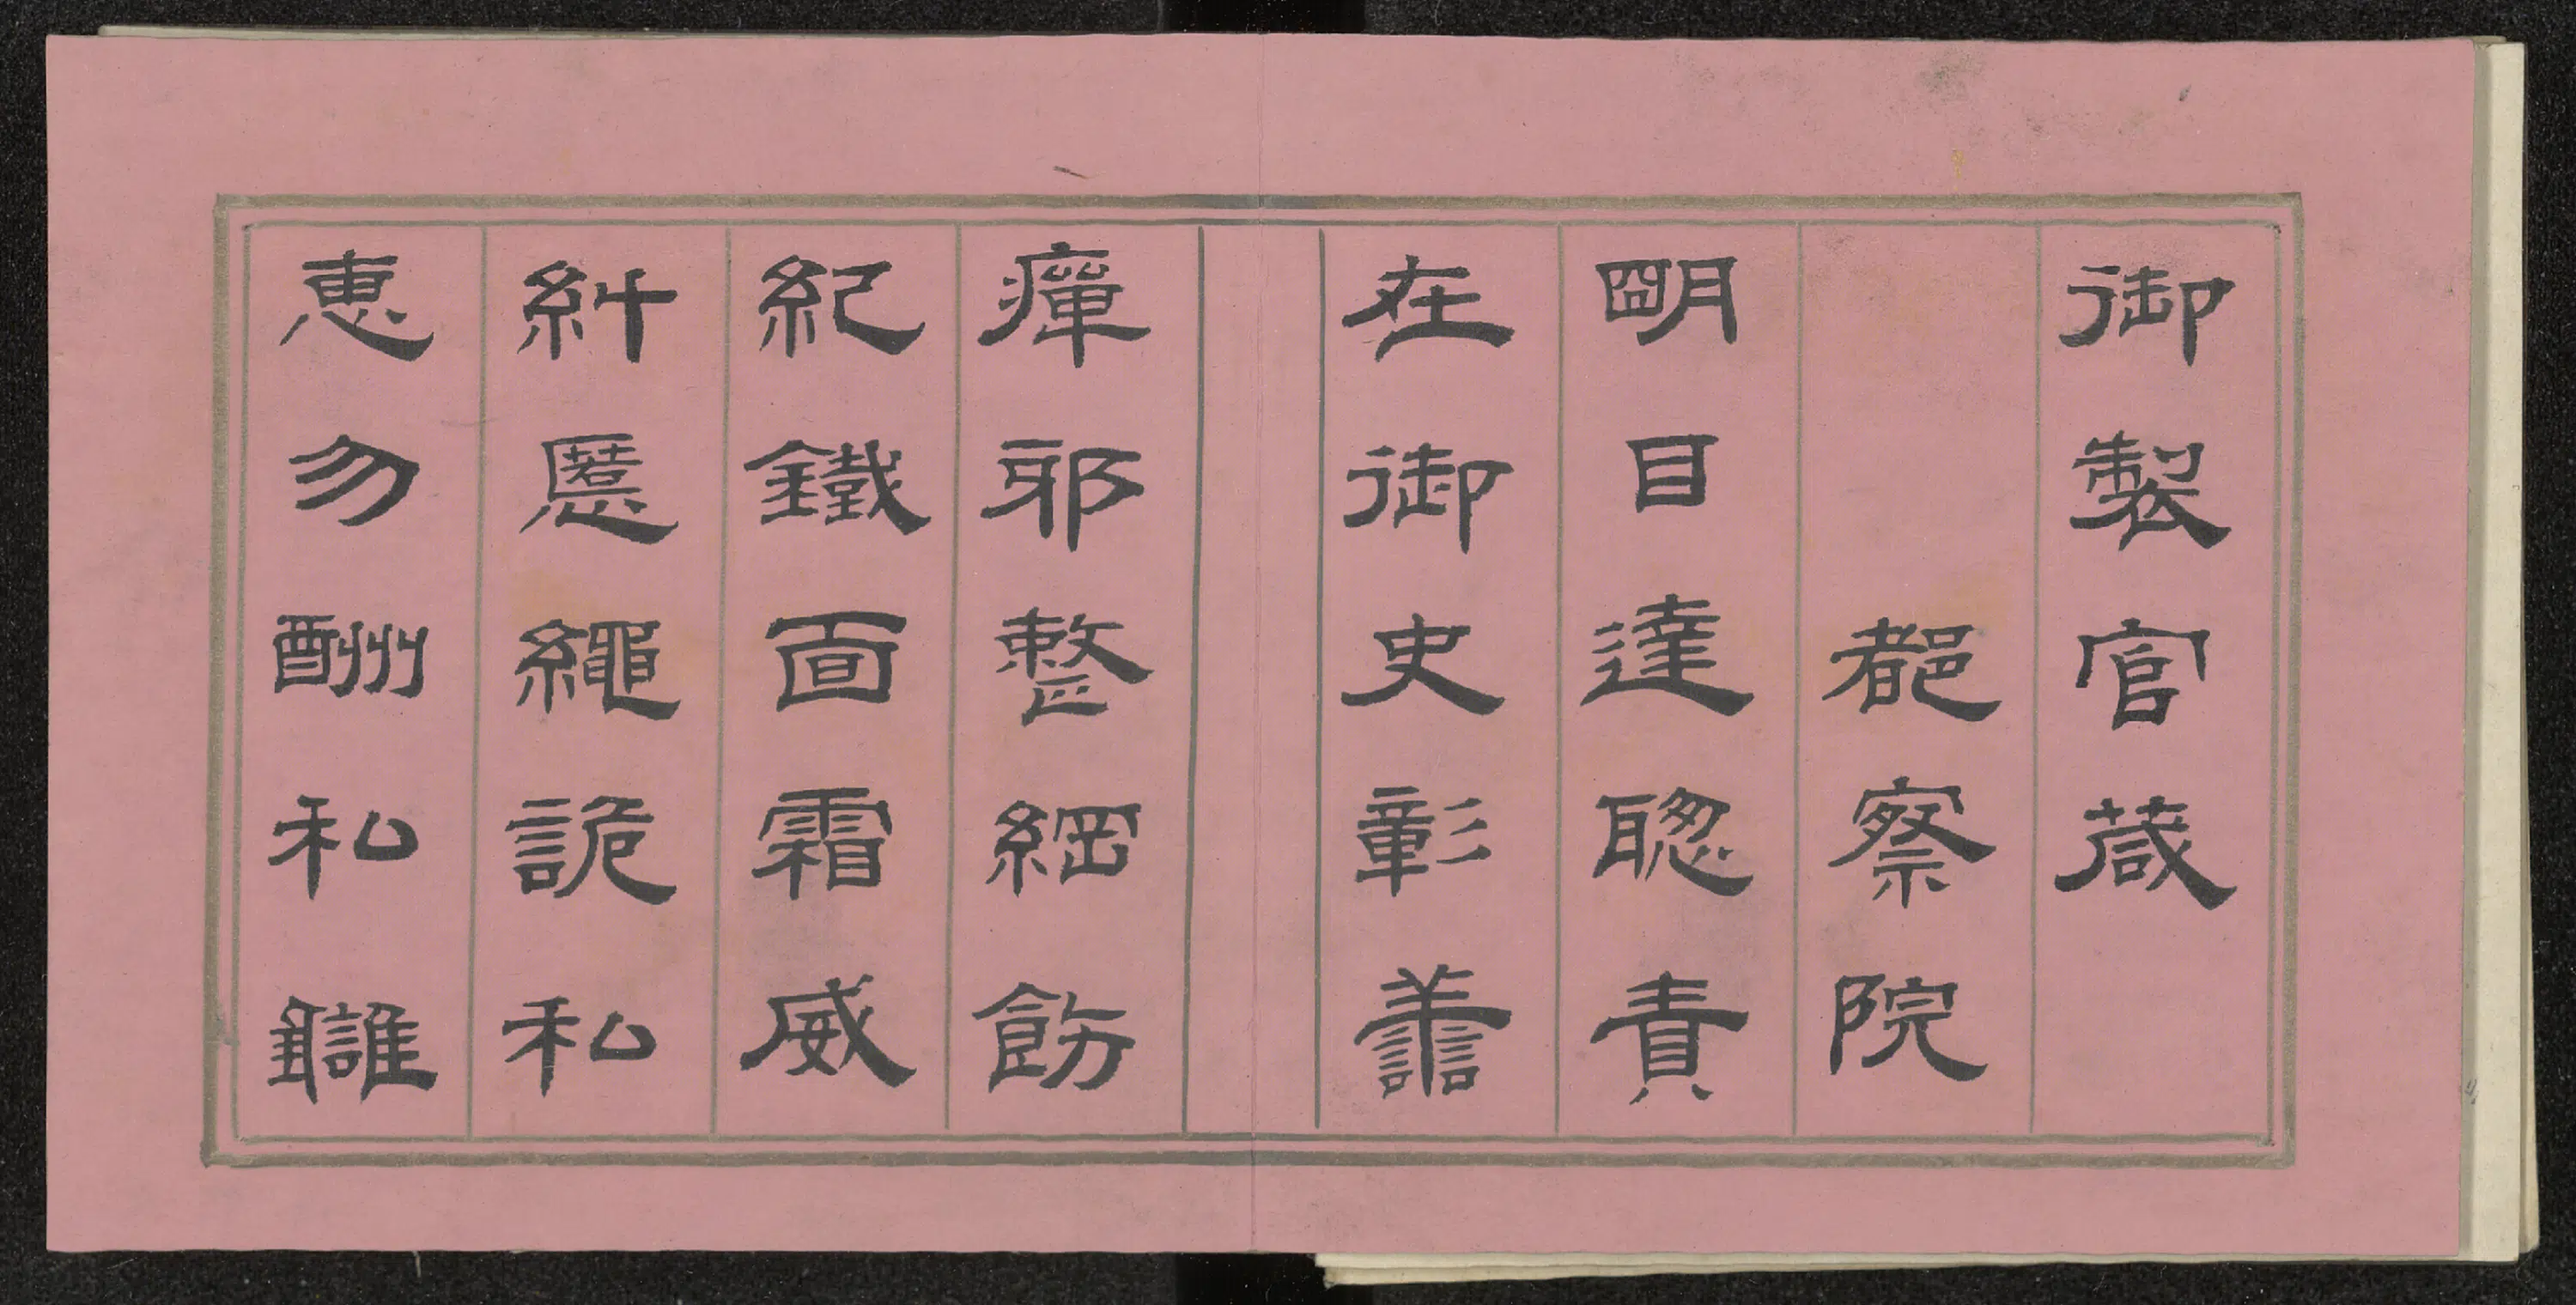 御製官葴
都察院
朙目達聦責
在御史彰譱
癉邪整綱飭
紀鐵面霜威
糾慝繩詭私
惠勿酬私讎